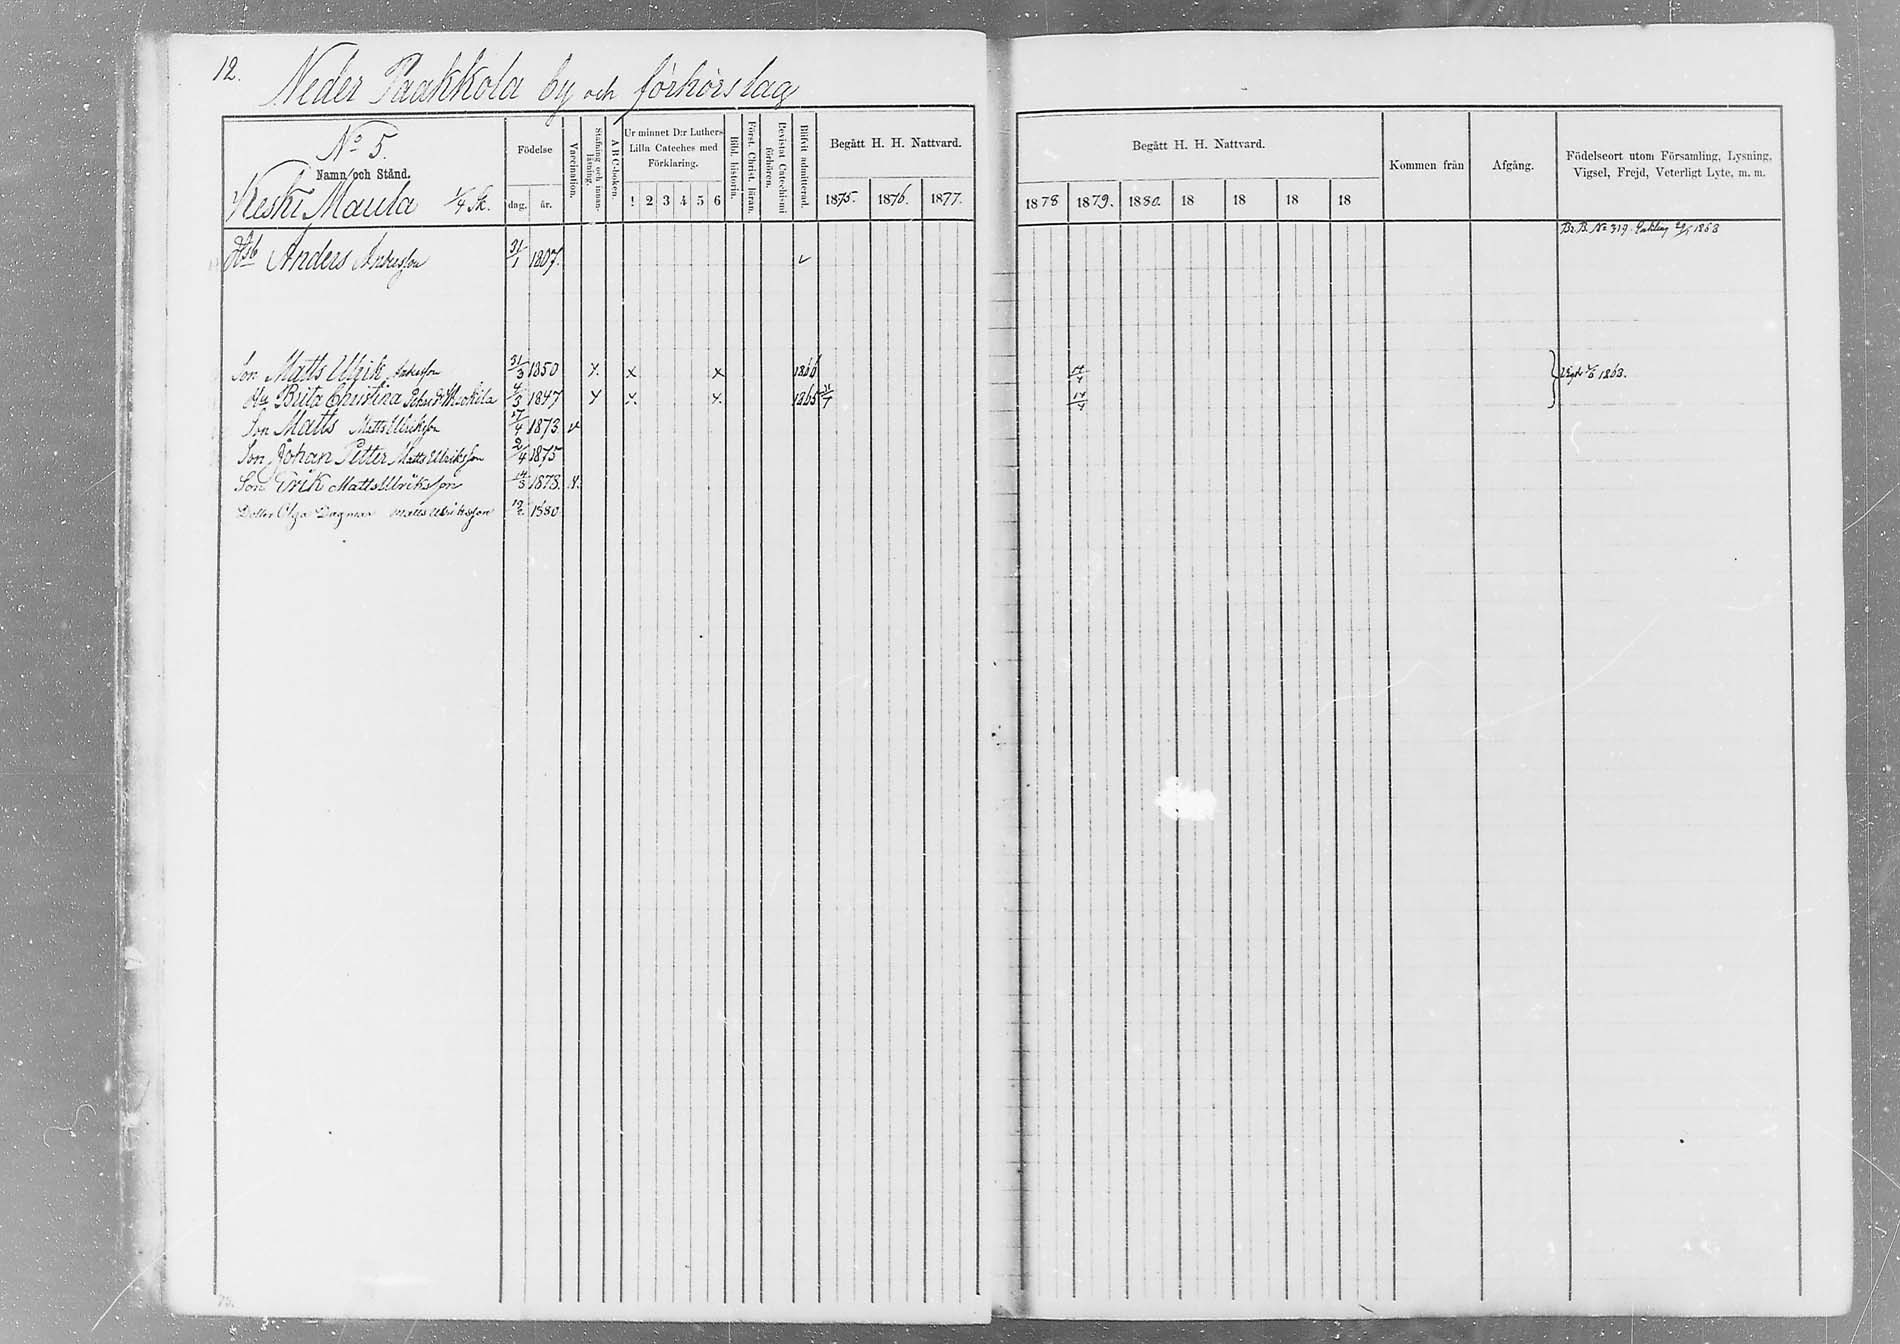 12.
Neder Paakkola by och förhörslag
No 5.
Namn och Stånd.
Keski Maula 1/4 Sk.
Födelse
dag. år.
Vaccination.
Stafning och innanläsning.
A B C-boken.
Ur minnet D:r Luthers Lilla Cateches med Förklaring.
1 2 3 4 5 6
Bibl. historia.
Först. Christ. läran.
Bevistat Catechismi förhören.
Blifvit admitterad.
Begått H. H. Nattvard.
1875. 1876. 1877.
Begått H. H. Nattvard.
1878 1879. 1880. 18 18 18 18
Kommen från
Afgång.
Födelseort utom Församling, Lysning, Vigsel, Frejd, Veterligt Lyte, m. m.
Br. B. No 319. 1868
Anders Andersson 31/1 1807.
Son Matts Ulrik Andersson 31/3 1850 x. x x 1866 14/4
Hu Brita Christina 4/3 1847 x x. x. 1865 14/4
Son Matts Matts Ulriksson 17/4 1873 v
Son Johan Petter Matts Ulriksson 2/4 1875
Son Erik Matts Ulriksson 14/3 1878. v.
Dotter Olga Dagmar Matts Ulriksson 1880